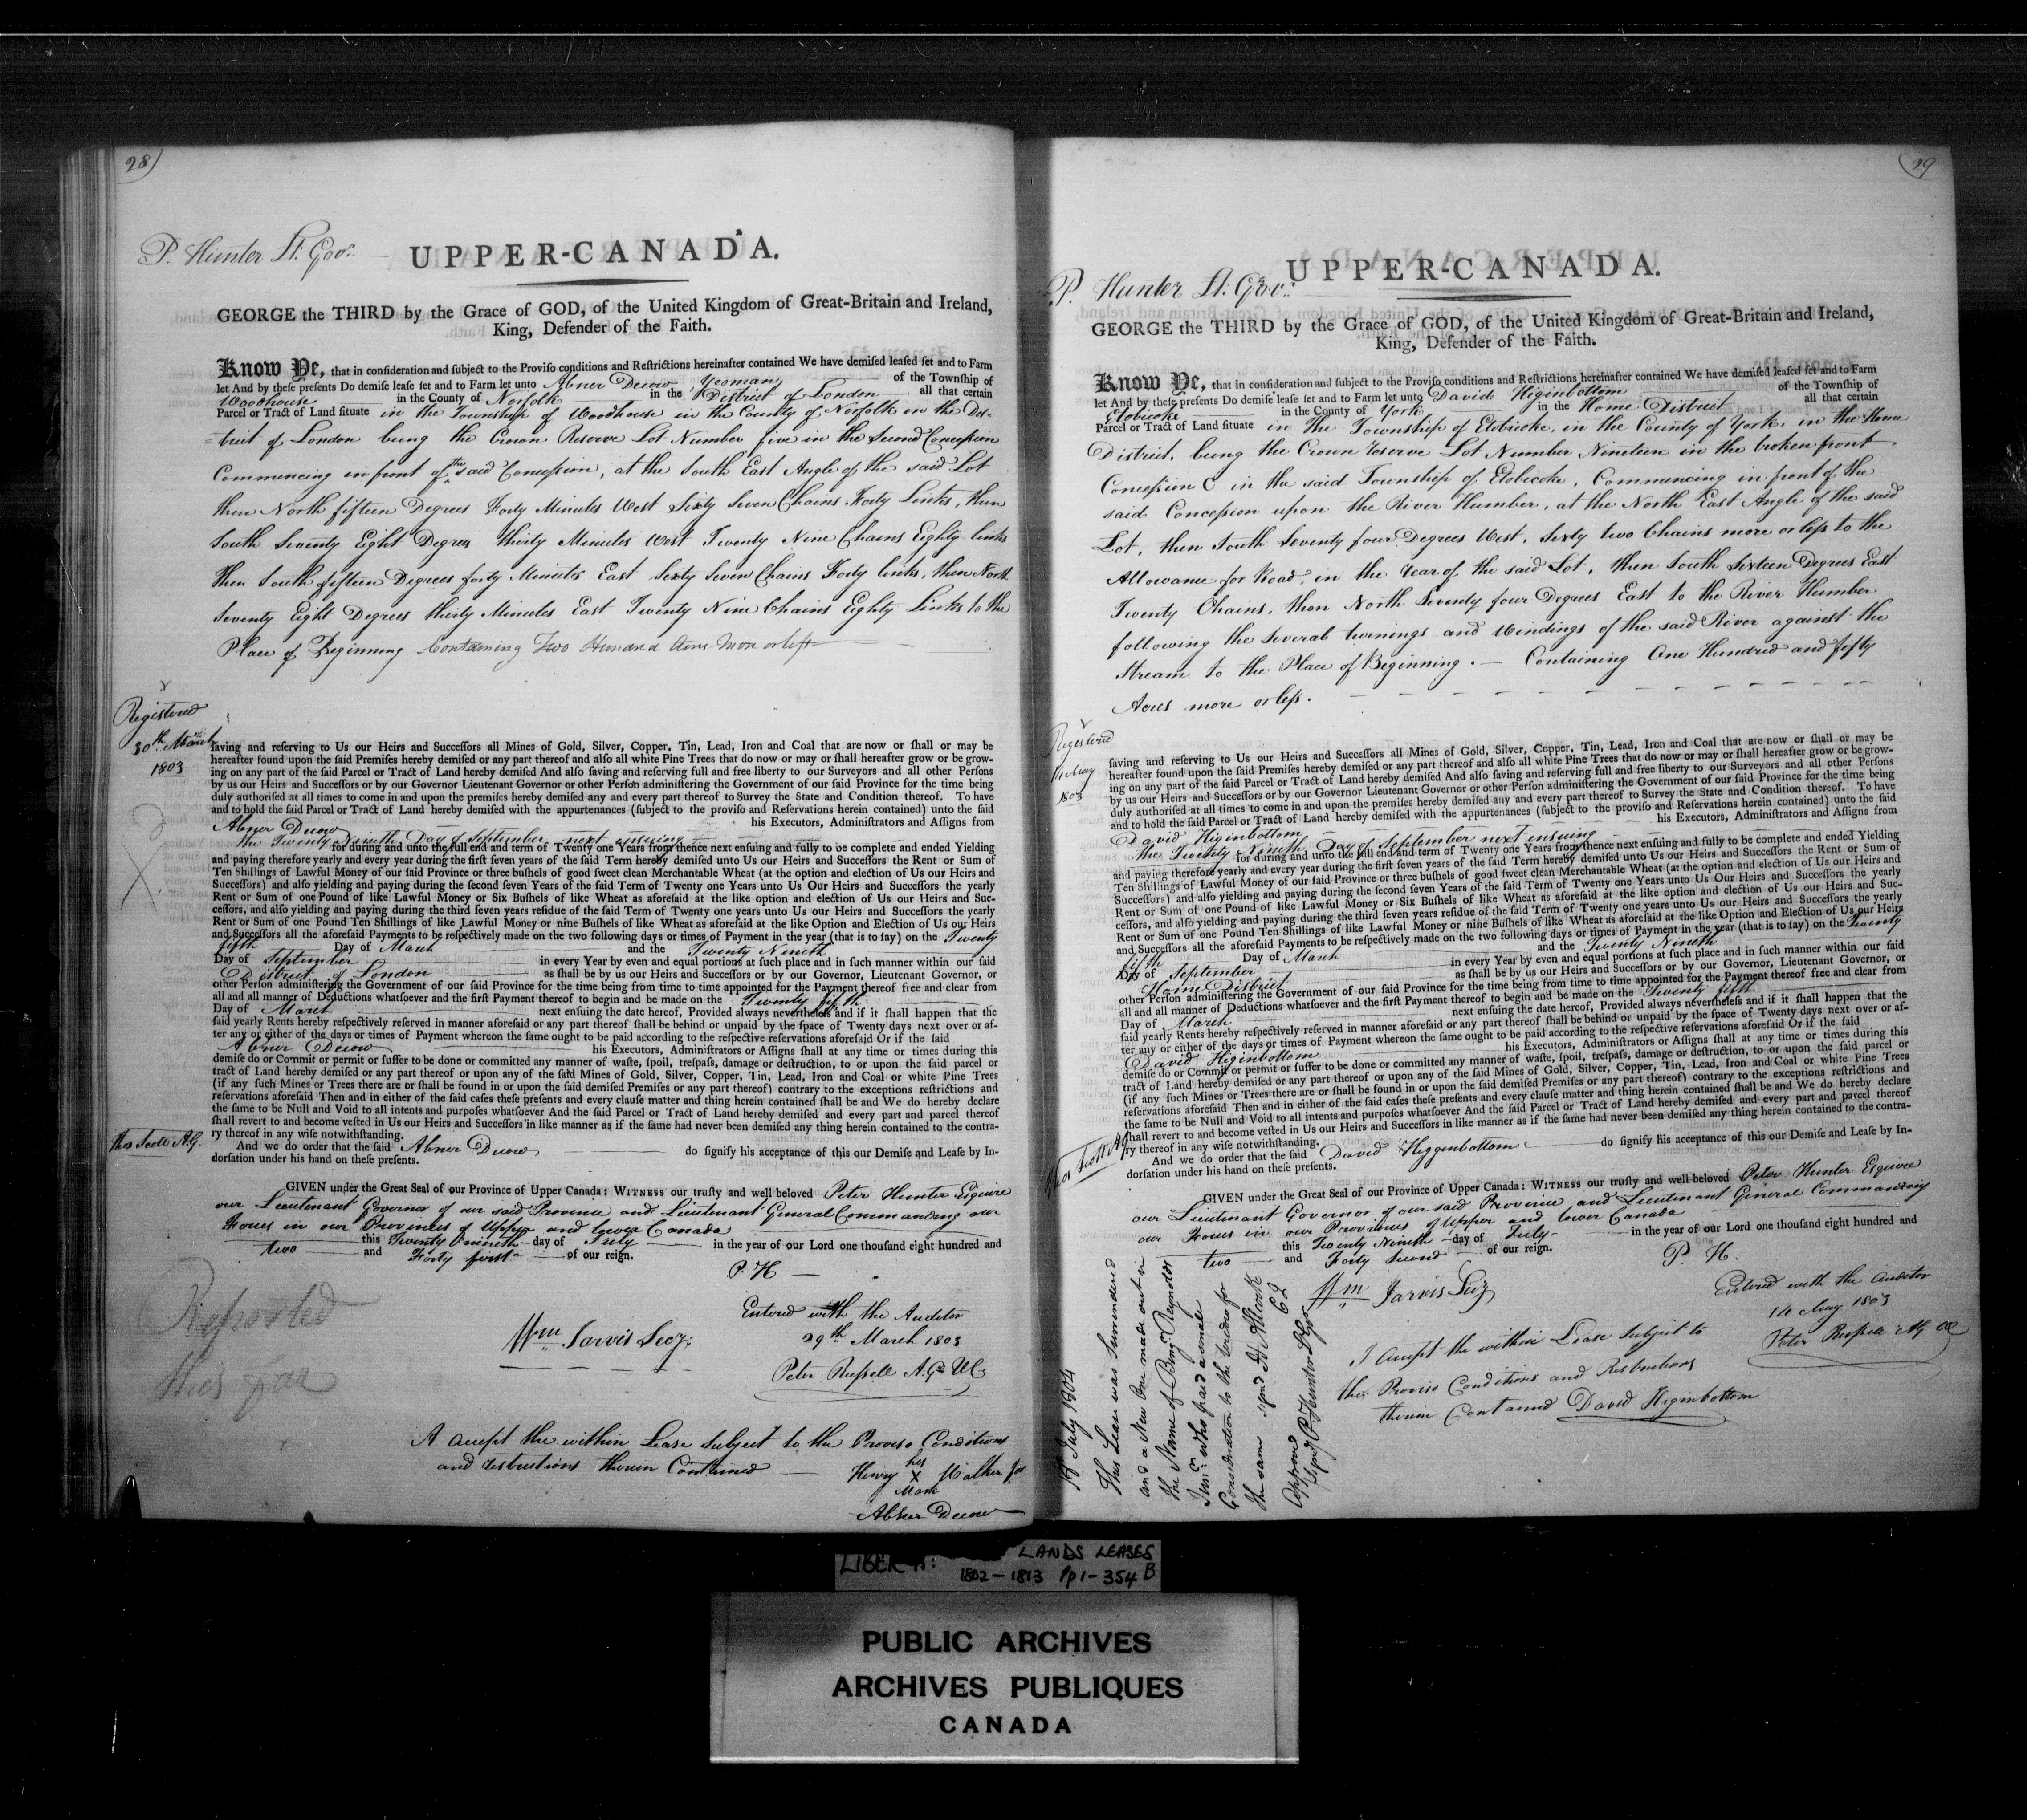 28)
P. Hunter Lt. Govr.
UPPER-CANADA.
GEORGE the THIRD by the Grace of GOD, of the United Kingdom of Great-Britain and Ireland,
King, Defender of the Faith.
Know Ye, that in confideration and fubject to the Provifo conditions and Reftrictions hereinafter contained We have demifed leafed fet and to Farm
let And by thefe prefents Do demife leafe fet and to Farm let unto Abner Decow Yeoman of the Townfhip of
Woodhouse in the County of Norfolk in the District of London all that certain
Parcel or Tract of Land fituate in the Township of Woodhouse in the County of Norfolk in the Dis-
=trict of London being the Crown Reserve Lot Number five in the Second Concession
Commencing in front of the said Concession, at the South East Angle of the said Lot
then North fifteen Degrees Forty Minutes West Sixty Seven Chains Forty Links, then
South Seventy Eight Degrees thirty Minutes West Twenty Nine Chains Eighty links
Then South fifteen Degrees forty Minutes East Sixty Seven Chains Forty links, then North
Seventy Eight Degrees thirty Minutes East Twenty Nine Chains Eighty Links to the
Place of Beginning Containing Two Hundred Acres More or less
Registered
30th March
1803
faving and referving to Us our Heirs and Succeffors all Mines of Gold, Silver, Copper, Tin, Lead, Iron and Coal that are now or fhall or may be
hereafter found upon the faid Premifes hereby demifed or any part thereof and alfo all white Pine Trees that do now or may or fhall hereafter grow or be grow-
ing on any part of the faid Parcel or Tract of Land hereby demifed And alfo faving and referving full and free liberty to our Surveyors and all other Perfons
by us our Heirs and Succeffors or by our Governor Lieutenant Governor or other Perfon adminiftering the Government of our faid Province for the time being
duly authorifed at all times to come in and upon the premifes hereby demifed any and every part thereof to Survey the State and Condition thereof. To have
and to hold the faid Parcel or Tract of Land hereby demifed with the appurtenances (fubject to the provifo and Refervations herein contained) unto the faid
Abner Decow his Executors, Adminiftrators and Affigns from
the Twenty ninth Day of September next ensuing
for during and unto the full end and term of Twenty one Years from thence next enfuing and fully to be complete and ended Yielding
and paying therefore yearly and every year during the firft feven years of the faid Term hereby demifed unto Us our Heirs and Succeffors the Rent or Sum of
Ten Shillings of Lawful Money of our faid Province or three bufhels of good fweet clean Merchantable Wheat (at the option and election of Us our Heirs and
Succeffors) and alfo yielding and paying during the fecond feven Years of the faid Term of Twenty one Years unto Us Our Heirs and Succeffors the yearly
Rent or Sum of one Pound of like Lawful Money or Six Bufhels of like Wheat as aforefaid at the like option and election of Us our Heirs and Suc-
ceffors, and alfo yielding and paying during the third feven years refidue of the faid Term of Twenty one years unto Us our Heirs and Succeffors the yearly
Rent or Sum of one Pound Ten Shillings of like Lawful Money or nine Bufhels of like Wheat as aforefaid at the like Option and Election of Us our Heirs
and Succeffors all the aforefaid Payments to be refpectively made on the two following days or times of Payment in the year (that is to fay) on the Twenty
fifth Day of March and the Twenty Nineth
Day of September in every Year by even and equal portions at fuch place and in fuch manner within our faid
District of London as fhall be by us our Heirs and Succeffors or by our Governor, Lieutenant Governor, or
other Perfon adminiftering the Government of our faid Province for the time being from time to time appointed for the Payment thereof free and clear from
all and all manner of Deductions whatfoever and the firft Payment thereof to begin and be made on the Twenty fifth
Day of March next enfuing the date hereof, Provided always neverthelefs and if it fhall happen that the
faid yearly Rents hereby refpectively referved in manner aforefaid or any part thereof fhall be behind or unpaid by the fpace of Twenty days next over or af-
ter any or either of the days or times of Payment whereon the fame ought to be paid according to the refpective refervations aforefaid Or if the faid
Abner Decow his Executors, Adminiftrators or Affigns fhall at any time or times during this
demife do or Commit or permit or fuffer to be done or committed any manner of wafte, fpoil, trefpafs, damage or deftruction, to or upon the faid parcel or
tract of Land hereby demifed or any part thereof or upon any of the faid Mines of Gold, Silver, Copper, Tin, Lead, Iron and Coal or white Pine Trees
(if any fuch Mines or Trees there are or fhall be found in or upon the faid demifed Premifes or any part thereof) contrary to the exceptions reftrictions and
refervations aforefaid Then and in either of the faid cafes thefe prefents and every claufe matter and thing herein contained fhall be and We do hereby declare
the fame to be Null and Void to all intents and purpofes whatfoever And the faid Parcel or Tract of Land hereby demifed and every part and parcel thereof
fhall revert to and become vefted in Us our Heirs and Succeffors in like manner as if the fame had never been demifed any thing herein contained to the contra-
ry thereof in any wife notwithftanding.
Thos Scott A.G.
And we do order that the faid Abner Decow do fignify his acceptance of this our Demife and Leafe by In-
dorfation under his hand on thefe prefents.
GIVEN under the Great Seal of our Province of Upper Canada: WITNESS our trufty and well beloved Peter Hunter Esquire
our Lieutenant Governor of our said Province and Lieutenant General Commanding our
Forces in our Provinces of Upper and lower Canada
this Twenty nineth day of July in the year of our Lord one thoufand eight hundred and
two and Forty first of our reign.
P. H
Reported
thus far
Wm Jarvis Secy.
Entered with the Auditor
29th March 1803
Peter Russell A. G. UC
I accept the within Lease Subject to the Proviso Conditions
and restrictions therein Contained Henry his X Mark Walker Jr
Abner Decow
29
P. Hunter Lt. Govr.
UPPER-CANADA.
GEORGE the THIRD by the Grace of GOD, of the United Kingdom of Great-Britain and Ireland,
King, Defender of the Faith.
Know Ye, that in confideration and fubject to the Provifo conditions and Reftrictions hereinafter contained We have demifed leafed fet and to Farm
let And by thefe prefents Do demife leafe fet and to Farm let unto David Higinbottom of the Townfhip of
Etobicoke in the County of York in the Home District all that certain
Parcel or Tract of Land fituate in the Township of Etobicoke, in the County of York, in the Home
District, being the Crown reserve Lot Number Nineteen in the broken front
Concession C in the said Township of Etobicoke, Commencing in front of the
said Concession upon the River Humber, at the North East Angle of the said
Lot, then South Seventy four Degrees West, Sixty two Chains more or less to the
Allowance for Road, in the rear of the said Lot, then South Sixteen Degrees East
Twenty Chains, then North Seventy four Degrees East to the River Humber
following the several turnings and Windings of the said River against the
Stream to the Place of Beginning. — Containing One Hundred and fifty
Acres more or less.
Registered
14 May
1803
faving and referving to Us our Heirs and Succeffors all Mines of Gold, Silver, Copper, Tin, Lead, Iron and Coal that are now or fhall or may be
hereafter found upon the faid Premifes hereby demifed or any part thereof and alfo all white Pine Trees that do now or may or fhall hereafter grow or be grow-
ing on any part of the faid Parcel or Tract of Land hereby demifed And alfo faving and referving full and free liberty to our Surveyors and all other Perfons
by us our Heirs and Succeffors or by our Governor Lieutenant Governor or other Perfon adminiftering the Government of our faid Province for the time being
duly authorifed at all times to come in and upon the premifes hereby demifed any and every part thereof to Survey the State and Condition thereof. To have
and to hold the faid Parcel or Tract of Land hereby demifed with the appurtenances (fubject to the provifo and Refervations herein contained) unto the faid
David Higinbottom his Executors, Adminiftrators and Affigns from
the Twenty Nineth Day of September next ensuing
for during and unto the full end and term of Twenty one Years from thence next enfuing and fully to be complete and ended Yielding
and paying therefore yearly and every year during the firft feven years of the faid Term hereby demifed unto Us our Heirs and Succeffors the Rent or Sum of
Ten Shillings of Lawful Money of our faid Province or three bufhels of good fweet clean Merchantable Wheat (at the option and election of Us our Heirs and
Succeffors) and alfo yielding and paying during the fecond feven Years of the faid Term of Twenty one Years unto Us Our Heirs and Succeffors the yearly
Rent or Sum of one Pound of like Lawful Money or Six Bufhels of like Wheat as aforefaid at the like option and election of Us our Heirs and Suc-
ceffors, and alfo yielding and paying during the third feven years refidue of the faid Term of Twenty one years unto Us our Heirs and Succeffors the yearly
Rent or Sum of one Pound Ten Shillings of like Lawful Money or nine Bufhels of like Wheat as aforefaid at the like Option and Election of Us our Heirs
and Succeffors all the aforefaid Payments to be refpectively made on the two following days or times of Payment in the year (that is to fay) on the Twenty
fifth Day of March and the Twenty Nineth
Day of September in every Year by even and equal portions at fuch place and in fuch manner within our faid
Home District as fhall be by us our Heirs and Succeffors or by our Governor, Lieutenant Governor, or
other Perfon adminiftering the Government of our faid Province for the time being from time to time appointed for the Payment thereof free and clear from
all and all manner of Deductions whatfoever and the firft Payment thereof to begin and be made on the Twenty fifth
Day of March next enfuing the date hereof, Provided always neverthelefs and if it fhall happen that the
faid yearly Rents hereby refpectively referved in manner aforefaid or any part thereof fhall be behind or unpaid by the fpace of Twenty days next over or af-
ter any or either of the days or times of Payment whereon the fame ought to be paid according to the refpective refervations aforefaid Or if the faid
David Higinbottom his Executors, Adminiftrators or Affigns fhall at any time or times during this
demife do or Commit or permit or fuffer to be done or committed any manner of wafte, fpoil, trefpafs, damage or deftruction, to or upon the faid parcel or
tract of Land hereby demifed or any part thereof or upon any of the faid Mines of Gold, Silver, Copper, Tin, Lead, Iron and Coal or white Pine Trees
(if any fuch Mines or Trees there are or fhall be found in or upon the faid demifed Premifes or any part thereof) contrary to the exceptions reftrictions and
refervations aforefaid Then and in either of the faid cafes thefe prefents and every claufe matter and thing herein contained fhall be and We do hereby declare
the fame to be Null and Void to all intents and purpofes whatfoever And the faid Parcel or Tract of Land hereby demifed and every part and parcel thereof
fhall revert to and become vefted in Us our Heirs and Succeffors in like manner as if the fame had never been demifed any thing herein contained to the contra-
ry thereof in any wife notwithftanding.
Thos Scott AG
And we do order that the faid David Higgenbottom do fignify his acceptance of this our Demife and Leafe by In-
dorfation under his hand on thefe prefents.
GIVEN under the Great Seal of our Province of Upper Canada: WITNESS our trufty and well beloved Peter Hunter Esquire
our Lieutenant Governor of our said Province and Lieutenant General Commanding
our Forces in our Provinces of Upper and lower Canada
this Twenty Nineth day of July in the year of our Lord one thoufand eight hundred and
two and Forty Second of our reign.
P. H.
Wm Jarvis Secy
Entered with the Auditor
14 May 1803
Peter Russell Ag
I accept the within Lease Subject to
the Proviso Conditions and Restrictions
therein Contained David Higinbottom
July 1804
This Lease was Surrendered
and a New One made out in
the Name of Benjn. Reynolds
Junr. who paid a small
Consideration to the for
the same signd H Allcock
Approvd
signd P. Hunter Lt Gr
LIBER A: LANDS LEASES
1802 – 1813 Pp 1 – 354 B
PUBLIC ARCHIVES
ARCHIVES PUBLIQUES
CANADA